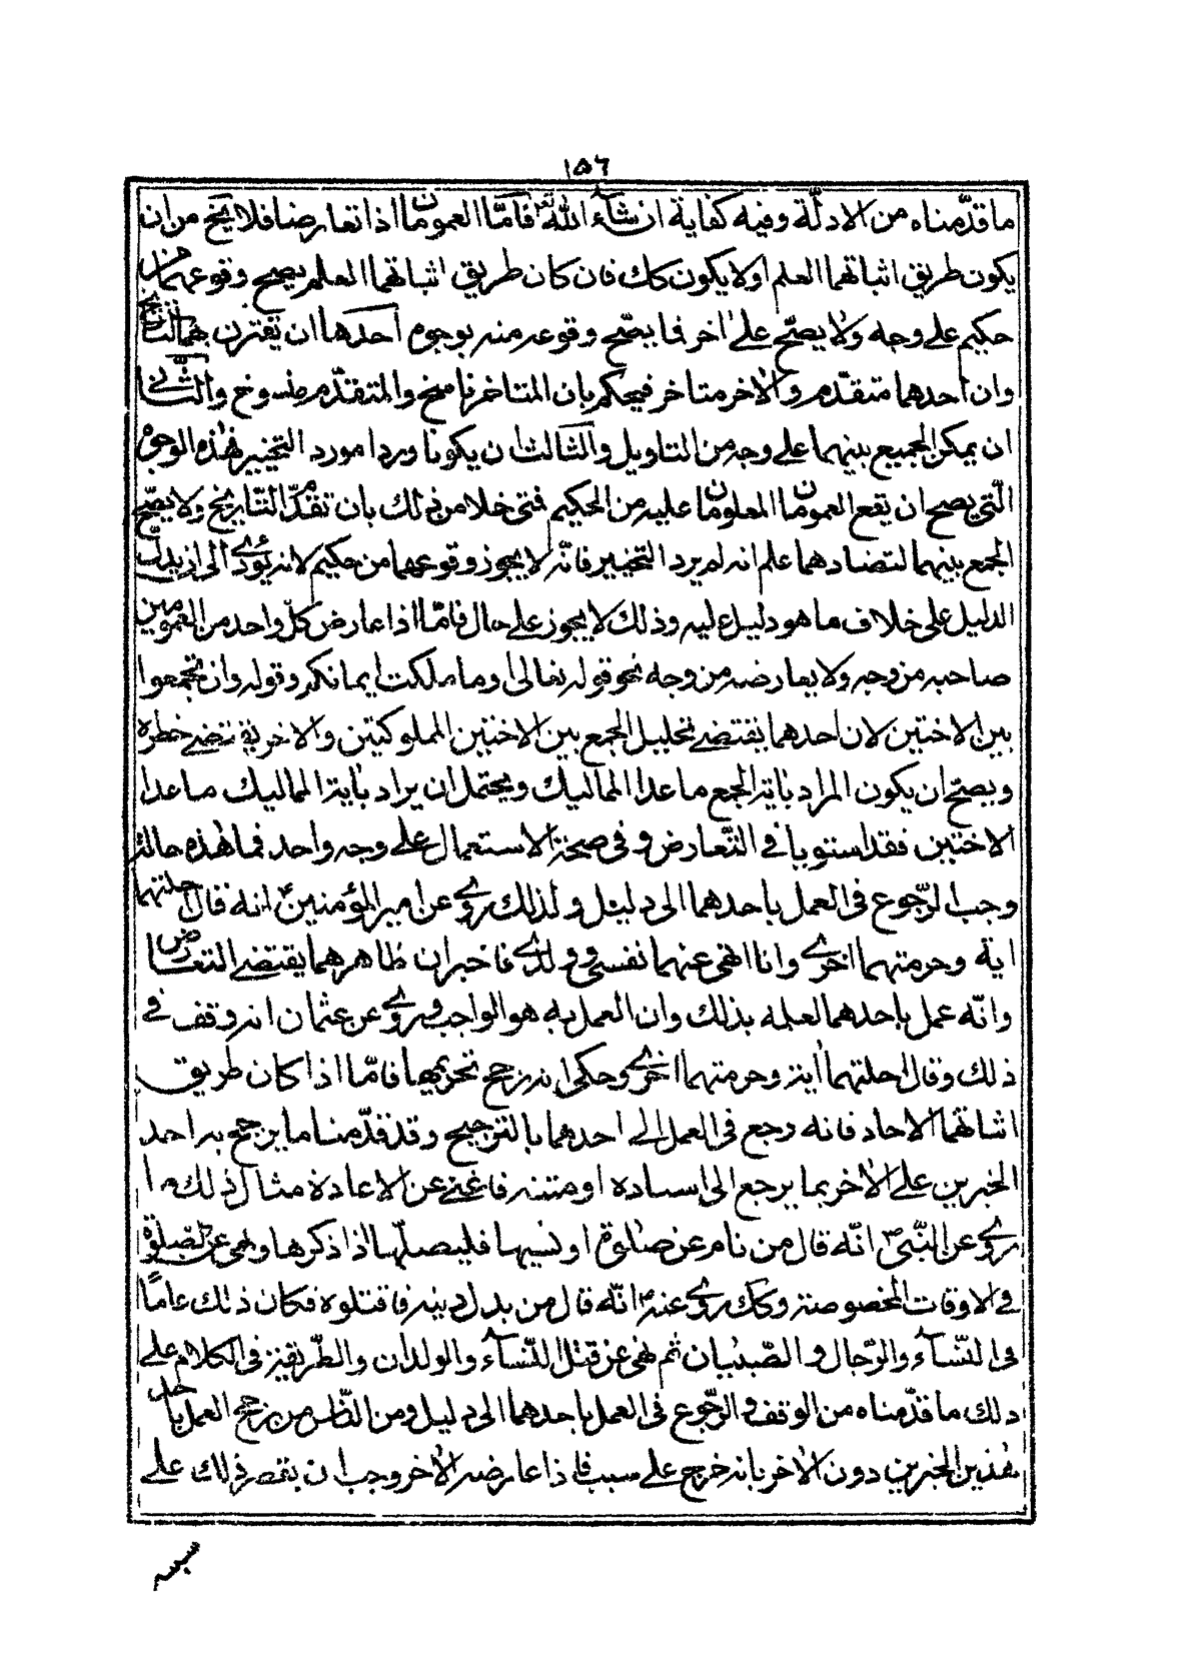 ١٥٦
ما قدّمناه من الادلّة وفيه كفاية ان شآء الله تعالى فامّا العمومان اذا تعارضا فلا يخ من ان
يكون طريق اثباتهما العلم اولا يكون كك فان كان طريق اثباتهما العلم يصح وقوعهما من
حكيم على وجه ولا يصحّ على اخر فما يصحّ وقوعه منه بوجوه احدها ان يقترن بهما التاريخ
وان احدهما متقدّم والاخر متاخر فيحكم بان المتاخر ناسخ والمتقدّم منسوخ والثّانى
ان يمكن الجميع بينهما على وجه من التاويل والثالث ان يكونا وردا مورد التخيير فهذه الوجوه
الّتي يصح ان يقع العمومان المعلومان عليه من الحكيم فمتى خلا من ذلك بان تقدّم التّاريخ ولا يصحّ
الجمع بينهما لتضادهما علم انه لم يرد التخيير فانّه لا يجوز وقوعهما من حكيم لانه يؤدّى الى ان يدلّ
الدليل على خلاف ما هو دليل عليه وذلك لا يجوز على حال فامّا اذا عارض كلّ واحد من العمومين
صاحبه من وجه ولا يعارضه من وجه نحو قوله تعالى او ما ملكت ايمانكم وقوله وان تجمعوا
بين الاختين لان احدهما يقتضى تحليل الجمع بين الاختين المملوكتين والاخر يقتضى خطره
ويصحّ ان يكون المراد باية الجمع ما عدا المماليك ويحتمل ان يراد باية المماليك ما عدا
الاختين فقد استويا في التّعارض وفى صحة الاستعمال على وجه واحد فما هذه حاله
وجب الرّجوع فى العمل باحدهما الى دليل ولذلك روى عن امير المؤمنينؑ انه قال احلتهما
اية وحرمتهما اخرى وانا انهى عنهما نفسى وولدى فاخبر ان ظاهرهما يقتضى التعارض
وانّه عمل باحدهما لعلمه بذلك وان العمل به هو الواجب وروى عن عثمان انه وقف فى
ذلك وقال احلتهما اية وحرمتهما اخرى وحكى انه رجح تحريمها فامّا اذا كان طريق
اثباتهما الاحاد فانه رجع فى العمل الى احدهما بالترجيح وقد قدّمنا ما يرجح به احد
الخبرين على الاخر بما يرجع الى اسناده او متنه فاغنى عن الاعادة مثال ذلك ما
روى عن النّبىّؐ انّه قال من نام عن صلوة او نسيها فليصلّها اذا ذكرها ونهى عن الصّلوة
فى الاوقات المخصوصة وكك روى عنهؐ انّه قال من بدل دينه فاقتلوه فكان ذلك عامًا
فى النّسآء والرّجال والصّبيان ثم نهى عن قتل النّسآء والولدان والطّريقة فى الكلام على
ذلك ما قدّمناه من الوقف والرّجوع فى العمل باحدهما الى دليل ومن النّاس من يرجح العمل باحد
هذين الخبرين دون الاخر بانه خرج على سبب فاذا عارضه الاخر وجب ان يقصر ذلك على
سببه